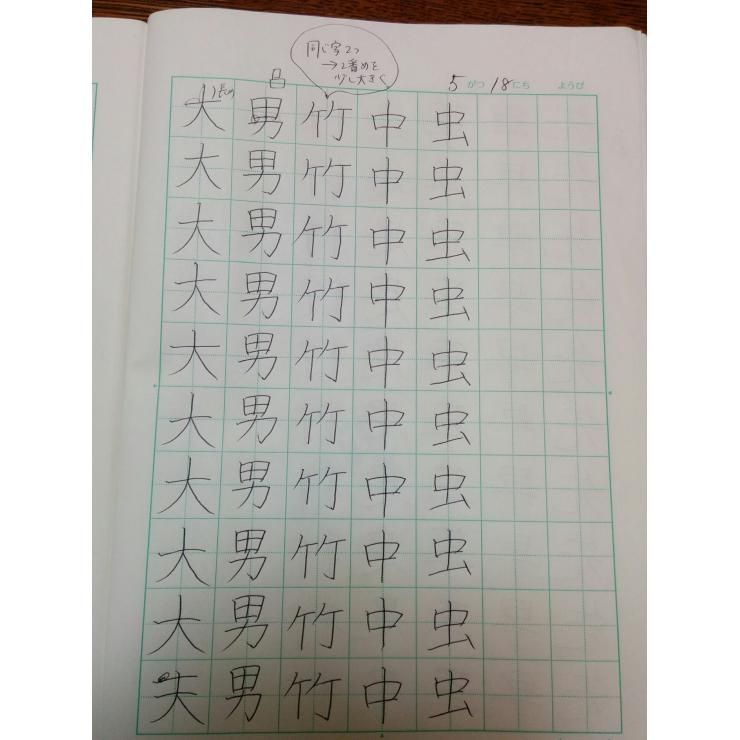 同じ字2つ
→2番めを
少し大きく
5がつ18にち ようび
長め
大 男 竹 中 虫
大 男 竹 中 虫
大 男 竹 中 虫
大 男 竹 中 虫
大 男 竹 中 虫
大 男 竹 中 虫
大 男 竹 中 虫
大 男 竹 中 虫
大 男 竹 中 虫
男 竹 中 虫